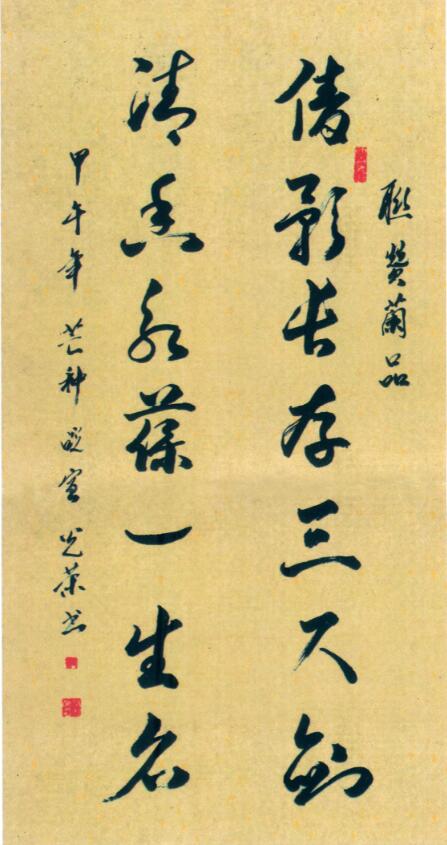 联赞兰品
倩影长存三尺剑
清香永葆一生名
甲午年 芒种 光荣书